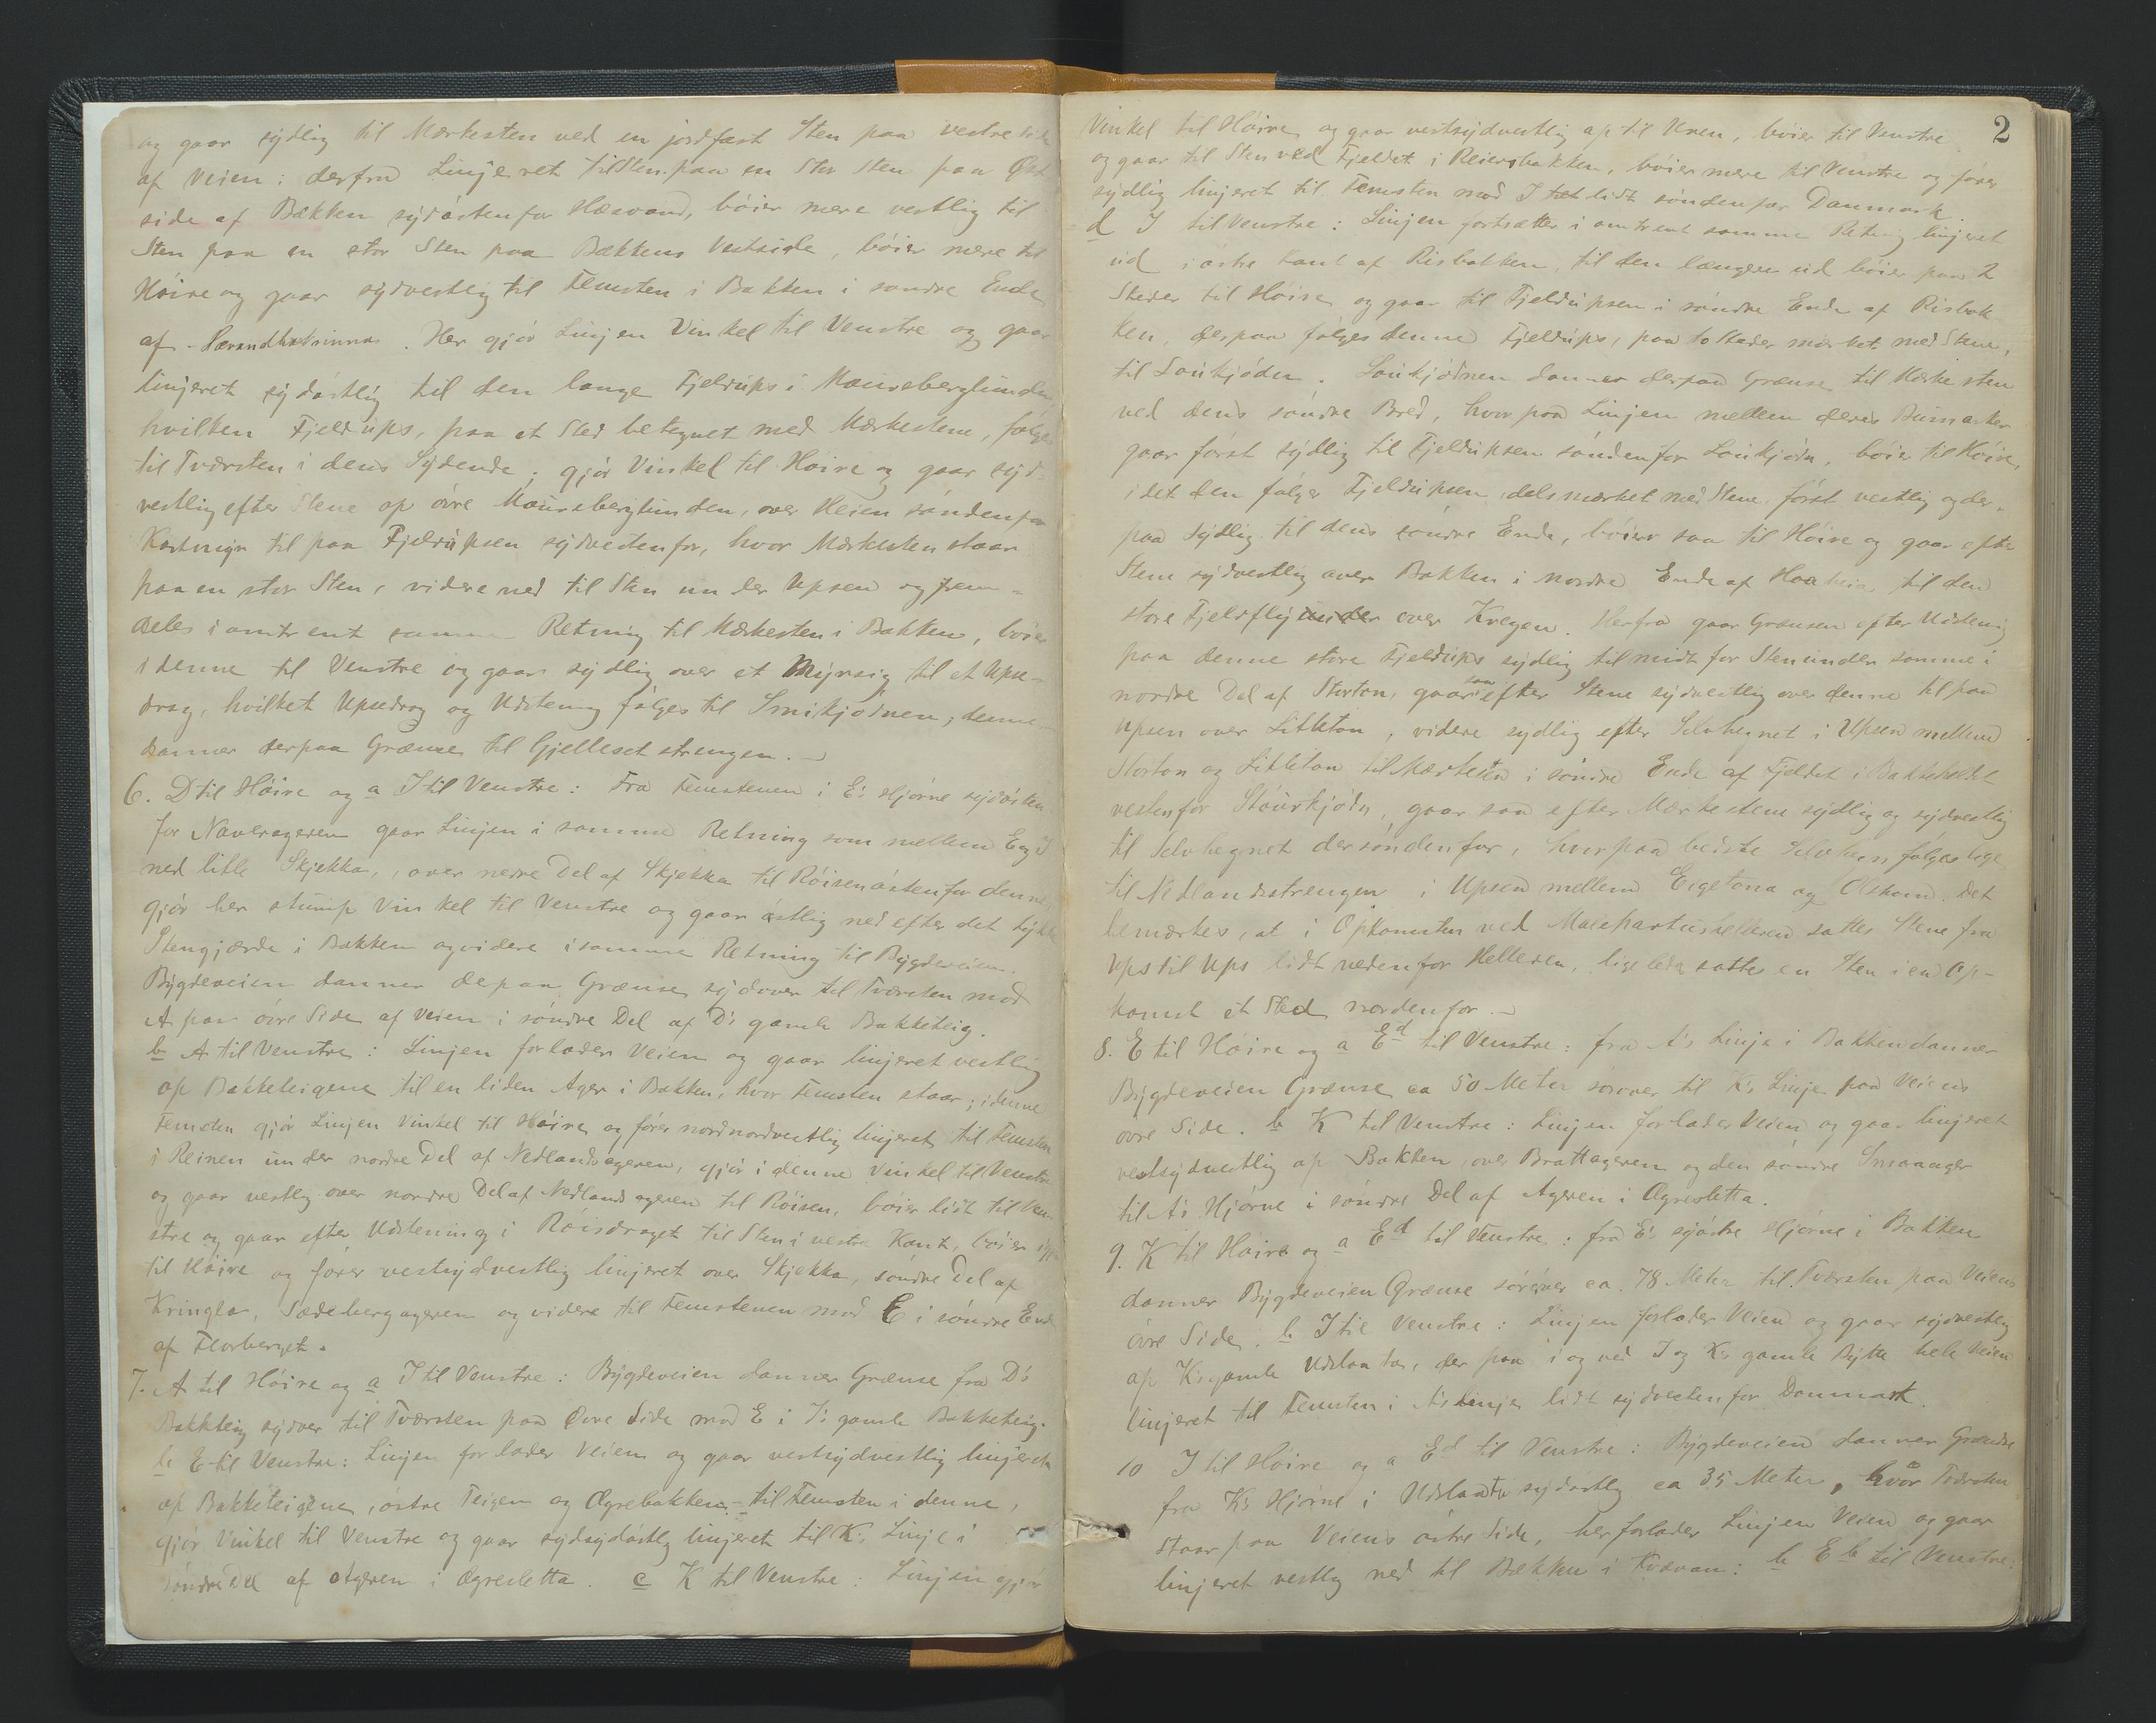 og gaar sydlig til Mærkesten ved en jordfast Sten paa vestre Side
af Veien; derfra Linjeret til Sten paa en Stor Sten paa Øst
side af Bækken sydöstenfor Hæsvand, böier mere vestlig til
Sten paa en stor Sten paa Bækkens Vestside, böier mere til
Höire og gaar sydvestlig til Femsten i Bakken i söndre Ende
af . Her gjör Linjen Vinkel til Venstre og gaar
linjeret sydöstlig til den lange Fjeldups i Maureberglunden
hvilken Fjeldups, paa et Sted betegnet med Mærkestene, fölges
til Tværsten i dens Sydende; gjör Vinkel til Höire og gaar syd-
vestlig efter Stene op övre Maureberglunden, over Heien söndenfor
Kortmyr til paa Fjeldupsen sydvestenfor, hvor Mærkesten staar
paa en stor Sten, videre ned til Sten under Upsen og frem-
deles i omtrent samme Retning til Mærkesten i Bakken, böier
i denne til Venstre og gaar sydlig over et Myrsig til et Upse-
drag, hvilket Upsedrag og Udstening fölges til Smikjödnen; denne
danner derpaa Grænse til Gjelleset strengen. -
6. D til Höire og a I til Venstre: Fra Femstenen i E's Hjörne sydösten-
for Naverageren gaar Linjen i samme Retning som mellem E og D
ned litle Skjekka, over nedre Del af Skjekka til Röisen östenfor denne,
gjör her stump Vinkel til Venstre og gaar östlig ned efter det tykke
Stengjærde i Bakken og videre i samme Retning til Bygdeveien.
Bygdeveien danner depaa Grænse sydover til Tværsten mod
A paa övre Side af Veien i söndre Del af D's gamle Bakketeig.
b A til Venstre: Linjen forlader Veien og gaar linjeret vestlig
op Bakketeigene til en liden Ager i Bakken, hvor Femsten staar; i denne
Femsten gjör Linjen Vinkel til Höire og förer nordnordvestlig linjeret til Femsten
i Reinen under nordre Del af Nedlandsageren, gjör i denne Vinkel til Venstre
og gaar vestlig over nordre Del af Nedlandsageren til Röisen, böier lidt til Ven-
stre og gaar efter Udstening i Röisdraget til Sten i vestre Kant, böier igjen
til Höire og förer vestsydvestlig linjeret over Skjekka, söndre Del af
Kringla, Sædebergageren og videre til Femstenen mod E i söndre Ende
af Florberget.
7. A til Höire og a I til Venstre: Bygdeveien danner Grænse fra D's
Bakkteig sydover til Tværsten paa Övre Side mod E i I's gamle Bakketeig.
b E til Venstre: Linjen forlader Veien og gaar vestsydvestlig linjeret
op Bakketeigene, östre Teigen og Ögrebakken - til Femsten i denne,
gjör Vinkel til Venstre og gaar sydsydöstlig linjeret til K's Linje i
söndre Del af Ageren i Ögresletta. c K til Venstre: Linjen gjör
2
Vinkel til Höire og gaar vestsydvestlig op til Uren, böier til Venstre
og gaar til Sten ved Fjeldet i Reiersbakken, böier mere til Venstre og förer
sydlig linjeret til Femsten mod I tæt lidt söndenfor Danmark.
d I til Venstre: Linjen fortsætter i omtrent samme Retning linjeret
ud i östre Kant af Risbakken, til den længere ud böier paa 2
Steder til Höire og gaar til Fjeldupsen i söndre Ende af Risbak
ken, derpaa fölges denne Fjeldups, paa to Steder mærket med Stene,
til Loukjöden. Loukjödnen danner derpaa Grænse til Mærkesten
ved dens söndre Bred, hvorpaa Linjen mellem deres Bumarker
gaar först sydlig til Fjeldupsen söndenfor Loukjödn, böier til Höire,
idet den fölger Fjeldupsen, dels mærket med Stene, först vestlig og der-
paa sydlig til dens söndre Ende, böier saa til Höire og gaar efter
Stene sydvestlig over Bakken i nordre Ende af Hoaheia, til den
store Fjeldfly under over Kregen. Herfra gaar Grænsen efter Udstening
paa denne store Fjeldups sydlig til midt for Sten under samme i
nordre Del af Storton, gaar saa efter Stene sydvestlig over denne til paa
Upsen over Litleton, videre sydlig efter Selvhegnet i Upsen mellem
Storton og Litleton til Mærkesten i söndre Ende af Fjeldet i Bakkeholdet
vestenfor Stöurkjödn, gaar saa efter Mærkestene sydlig og sydvestlig
til Selvhegnet dersöndenfor, hvorpaa bedste Selvhegn fölges lige
til Nedlandsstrengen i Upsen mellem Eegetona og Ølskom. Det
bemærkes, at i Opkomsten ved Malepartushelleren sattes Stene fra
Ups til Ups lidt nedenfor Helleren, ligeledes sattes en Sten i en Op-
komst et Sted nordenfor. -
8. E til Höire og a Ed til Venstre: fra A's Linje i Bakken danner
Bygdeveien Grænse ca 50 Meter sörover til K's Linje paa Veiens
övre Side. b K til Venstre: Linjen forlader Veien og gaar linjeret
vestsydvestlig op Bakken, over Brattageren og den söndre Smaaager
til A's Hjörne i söndre Del af Ageren i Ögresletta.
9. K til Höire og a Ed til Venstre: fra E's sydöstre Hjörne i Bakken
danner Bygdeveien Grænse söröver ca. 78 Meter til Tværsten paa Veiens
övre Side. b I til Venstre: Linjen forlader Veien og gaar sydvestlig
op K's gamle Udslaatta, der paa i og ved I og K's gamle Bytte hele Veien
linjeret til Femsten i A's Linje lidt sydvestenfor Danmark.
10 I til Höire og a Ed til Venstre: Bygdeveien danner Grændse
fra K's Hjörne i Udslaatta sydöstlig ca 35 Meter, hvor Tværsten
staar paa Veiens östre Side, her forlader Linjen Veien og gaar
linjeret vestlig ned til Bækken i Kvævan: b Eb til Venstre: